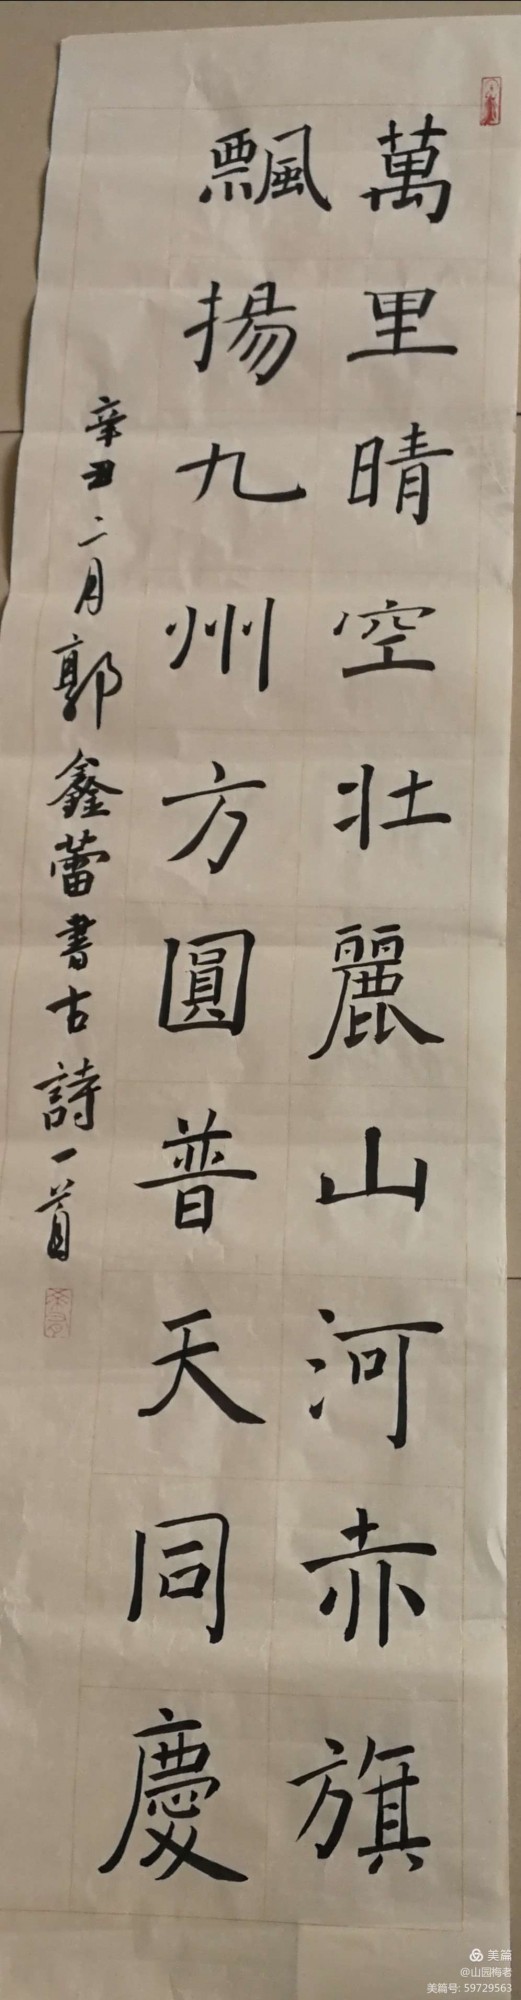 萬里晴空壯麗山河赤旗
飄揚九州方圓普天同慶
辛丑二月郭鑫蕾書古詩一首
美篇
@山园梅老
美篇号: 59729563